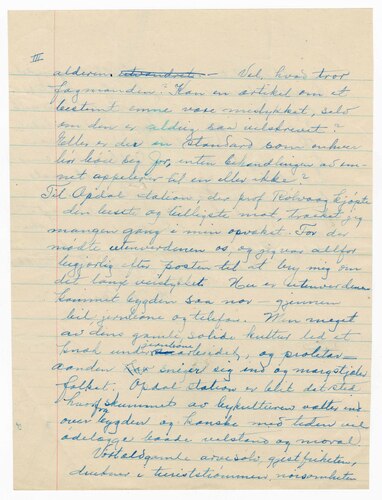 III
alderen utvandret — Vel, hvad tror
fagmanden? Kan en artikel om et
bestemt emne være mislykket, selv
om den er aldrig saa velskrevet?
Eller er der en standard som enhver
bør bøie seg for, enten behandlingen av em-
net appelerer til en eller ikke?
Til Opdal station, der prof Rölvaag kjöpte
din beset og billigste mat, traaket jeg
mangen gang i min opvekst. For der
møtte utenverdenen os, og jeg var altfor
begjærlig efter posten til at bry mig om
det lange veistykket. Nu er utenverdenen
kommet bygden saa nær — gjennem
bil, jernbane og telefon. Men meget
av dens gamle, solide kultur led et
knæk under arbeidet, og proletar-
aanden sniger sig ind og margstjæler
folket. Opdal station er blit det sted
hvorfra skummet av bykulturen vælter ind
over bygden og kanske med tiden vil
ødelægge baade velstand og moral.
Vort ældgamle arvesölv, gjestfriheten,
drukner i turiststrømmen, nøisomheten